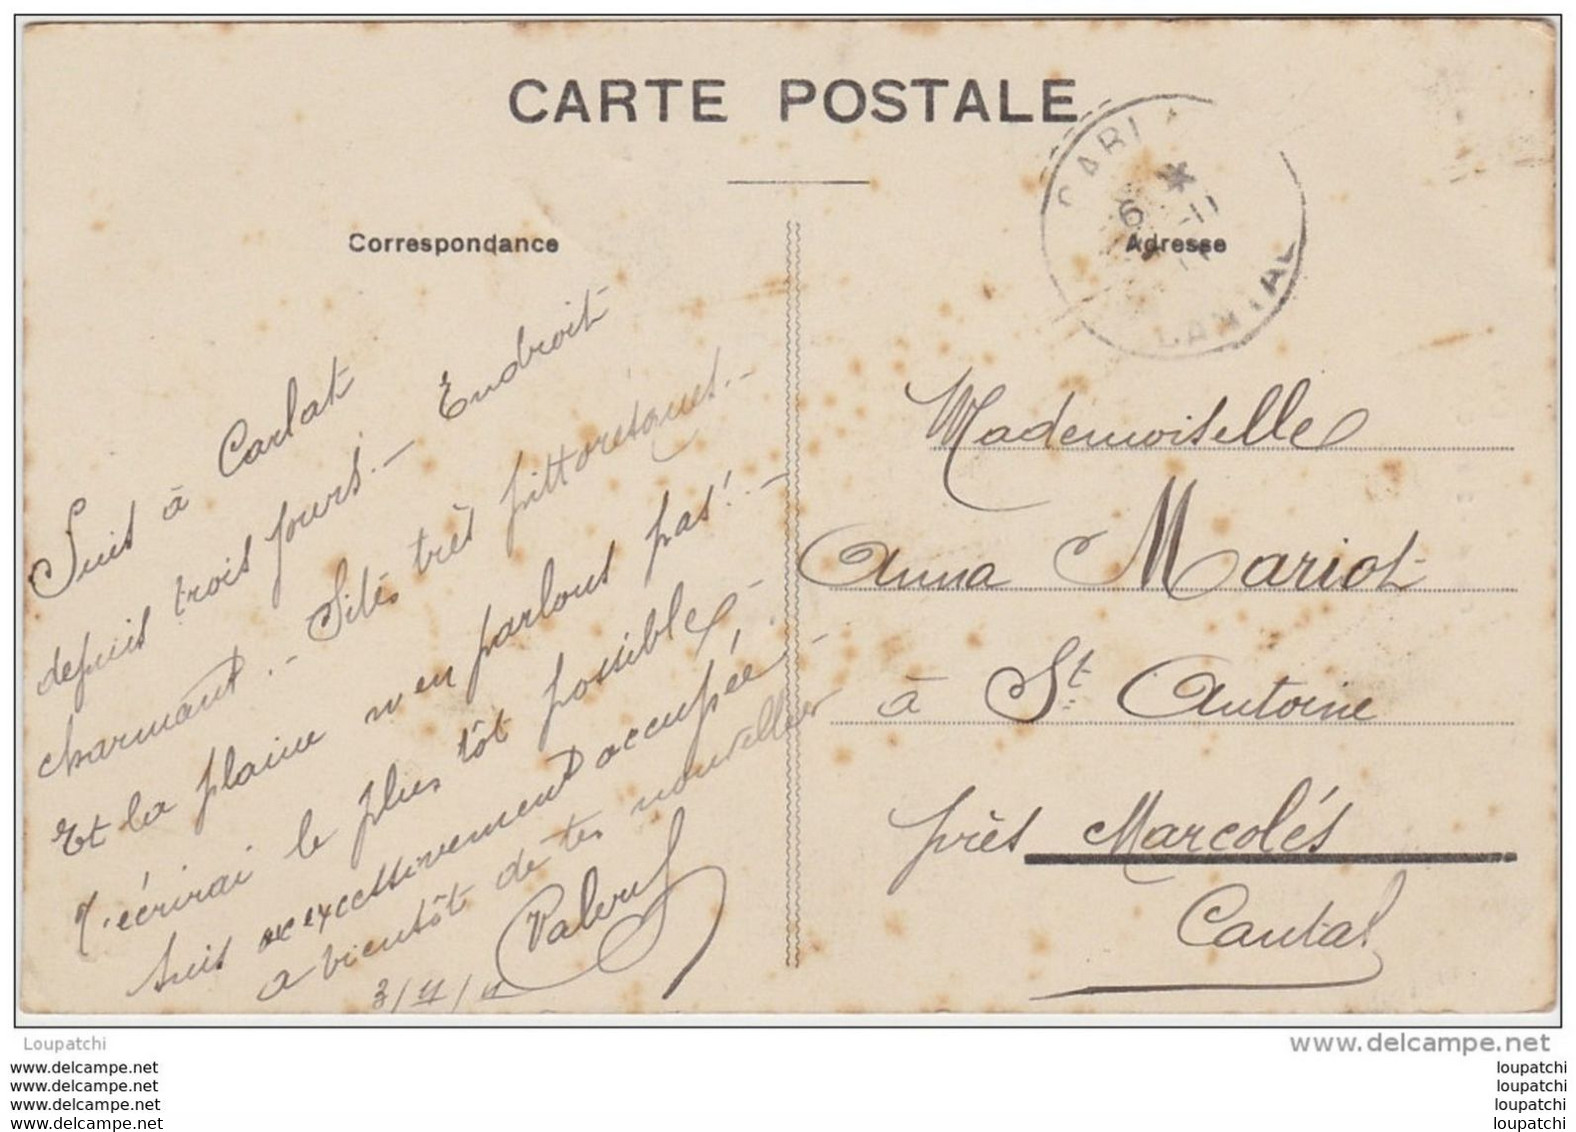 CARTE POSTALE
Correspondance
Suis à Carlat
depuis trois jours. - Endroit
charmant. - Sites très pittoresques. -
Et la plaine n'en parlons pas! -
T'écrirai le plus tôt possible -
suis excessivement occupée -
a bientôt de tes nouvelles
3/11/11
CARLA
*
6 -11
CANTAL
Adresse
Mademoiselle
Anna Mariot
à St Antoine
près Marcolés
Cantal
Loupatchi
www.delcampe.net
www.delcampe.net
www.delcampe.net
www.delcampe.net
www.delcampe.net
loupatchi
loupatchi
loupatchi
loupatchi